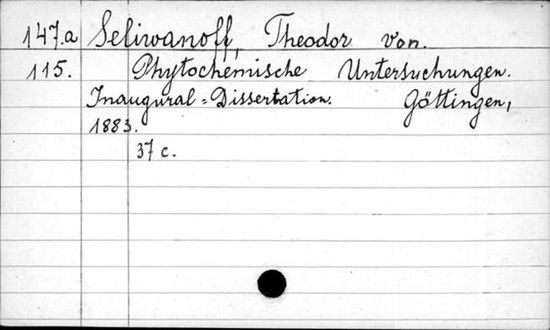 147.a Seliwanoff, Theodor von.
115. Phytochemische Untersuchungen.
Inaugural-Dissertation. Göttingen,
1883.
37 c.